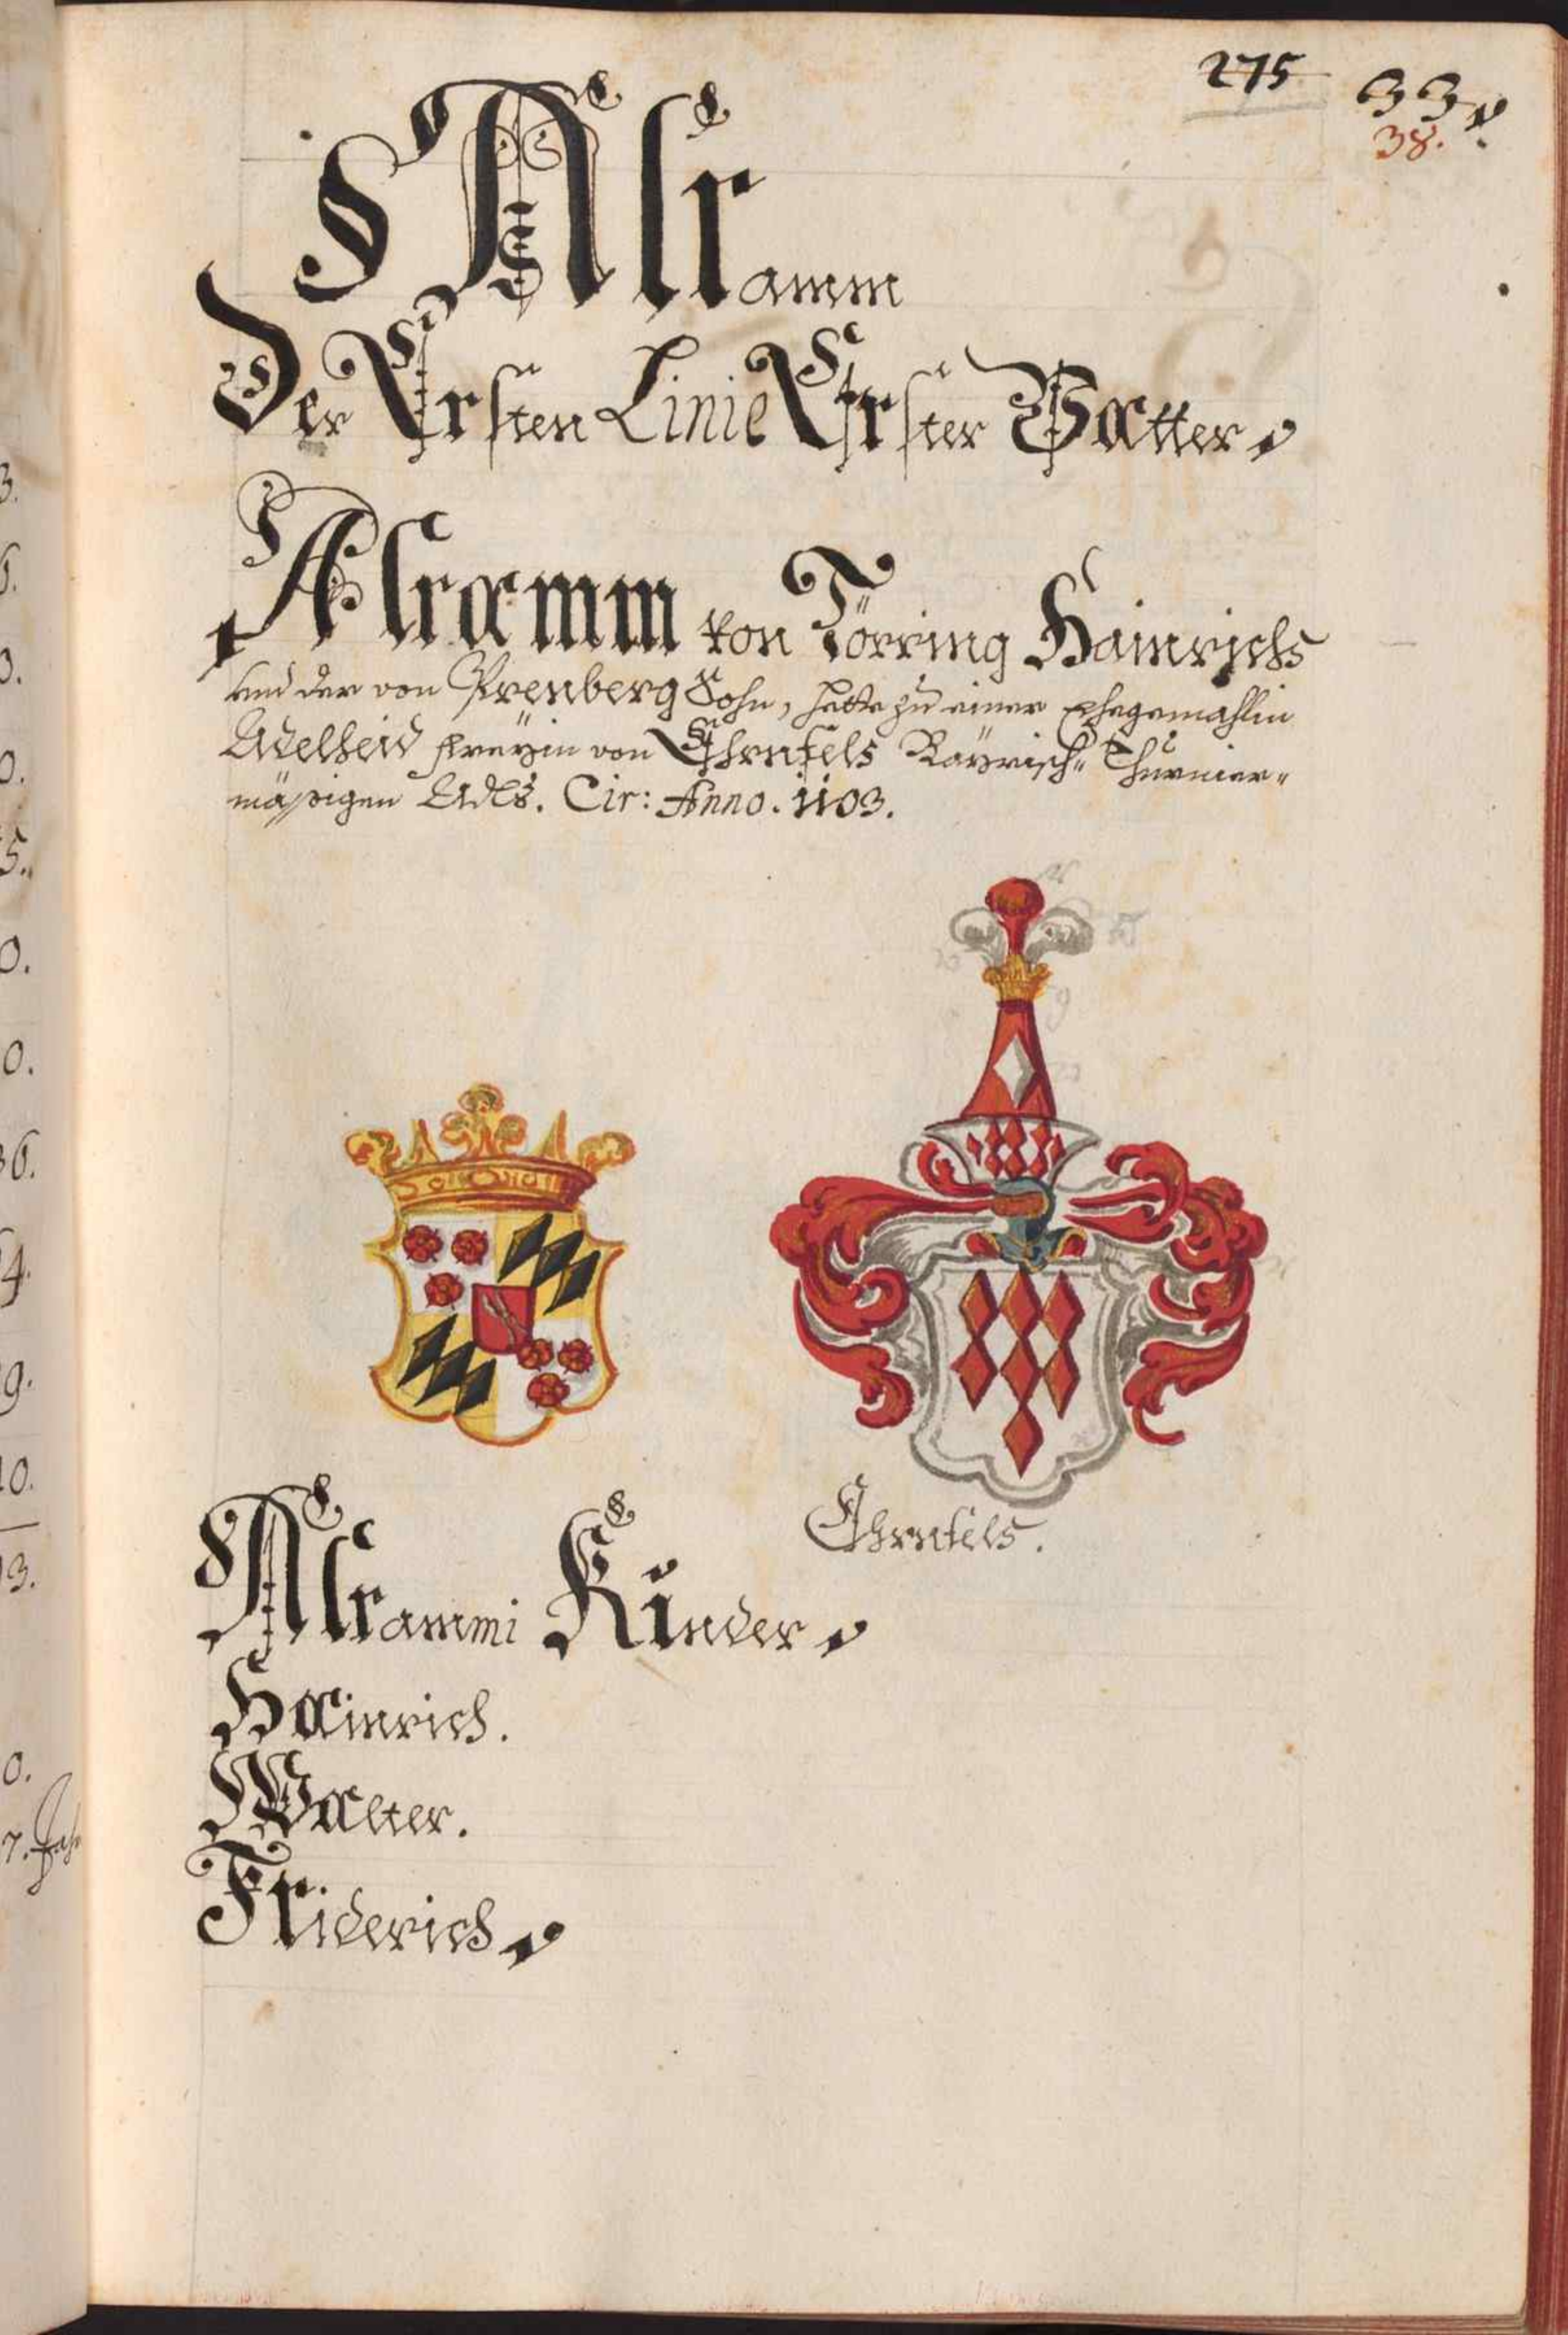 275 33
38.
Alramm
Der Ersten Linie Erster Vatter
Alramm von Törring Hainrichs
und der von Prenberg Sohn, hette zu einer Ehegemahlin
Adelheid Freÿin von Ehrnfels Baÿrisch= Thurnier=
mäßigen Adls. Cir: Anno. 1103.
Ehrnfels.
Alrammi Kinder
Hainrich.
Walter.
Friderich